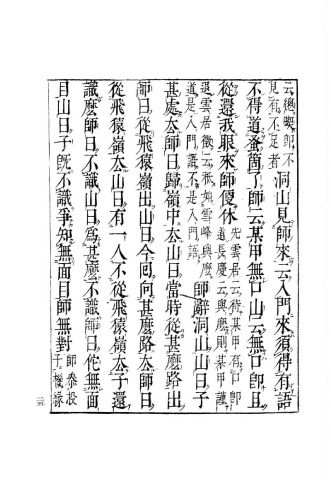 云總卽不
見有不足者
洞山見師來云入門來須得有語
不得道蚤箇了師云某甲無口山云無口卽且
從還我眼來師便休
先雲居云待某甲有口卽
道長慶云與麼則某甲謹
退雲居徵云祇如雪峰與麼
道是入門語不是入門語
師辭洞山山曰子
甚處去師曰歸嶺中去山曰當時從甚麼路
出
師曰從飛猿嶺出山曰今回向甚麼路去師曰
從飛猿嶺去山曰有一人不從飛猿嶺去子還
識麼師曰不識山曰爲甚麼不識師曰佗無面
目山曰子旣不識爭知無面目師無對
師叅投
子機緣